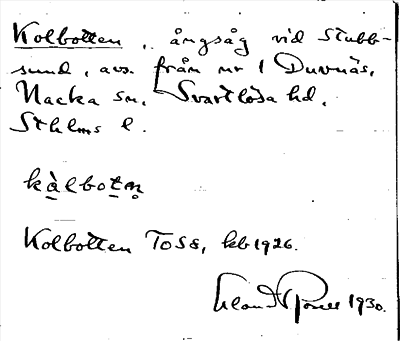 Kolbotten, ångsåg vid Stubb-
sund, avs. från nr 1 Duvnäs,
Nacka sn, Svartlösa hd,
Sthlms l.
kàlbotn̥
Kolbotten TOSS, kb 1926.
1930.